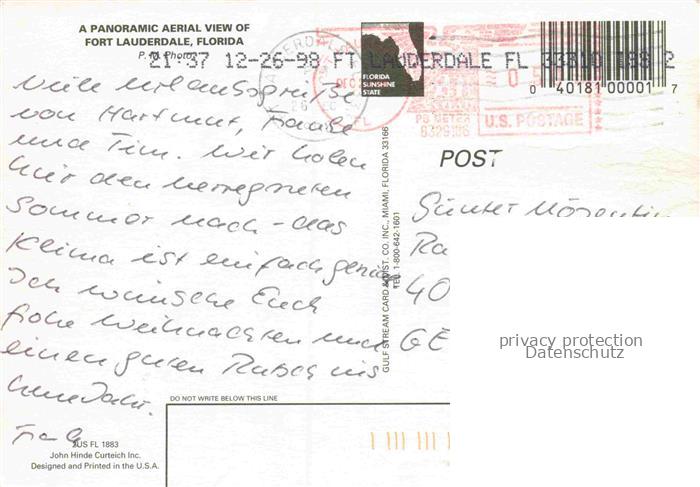 A PANORAMIC AERIAL VIEW OF
FORT LAUDERDALE, FLORIDA
P. Photo
21-37 12-26-98 FT LAUDERDALE FL 33310 188 2
FLORIDA
SUNSHINE
STATE
PB METER
U.S. POSTAGE
0 40181 00001 7
Viele Urlaubsgrüße
von Hartmut, Frauke
und Tim. Wir holen
hier den verregneten
Sommer nach - das
Klima ist einfach genial
Ich wünsche Euch
frohe Weihnachten und
einen guten Rutsch ins
neue Jahr.
POST
Günter
Ra
40
GE
GULF STREAM CARD & DIST. CO. INC., MIAMI, FLORIDA 33166
TEL. 1-800-642-1601
privacy protection
Datenschutz
DO NOT WRITE BELOW THIS LINE
JUS FL 1883
John Hinde Curteich Inc.
Designed and Printed in the U.S.A.